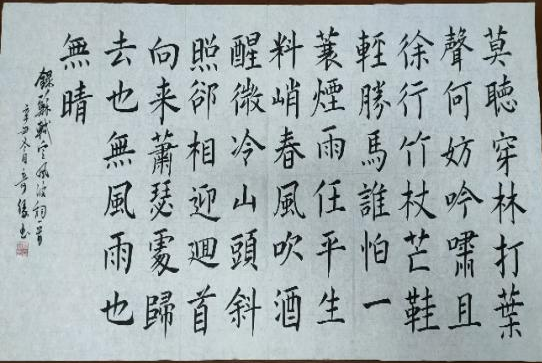 莫聽穿林打葉
聲何妨吟嘯且
徐行竹杖芒鞋
輕勝馬誰怕一
蓑煙雨任平生
料峭春風吹酒
醒微冷山頭斜
照郤相迎迴首
向来蕭瑟處歸
去也無風雨也
無晴
錄蘇軾定風波詞一首
辛丑冬月